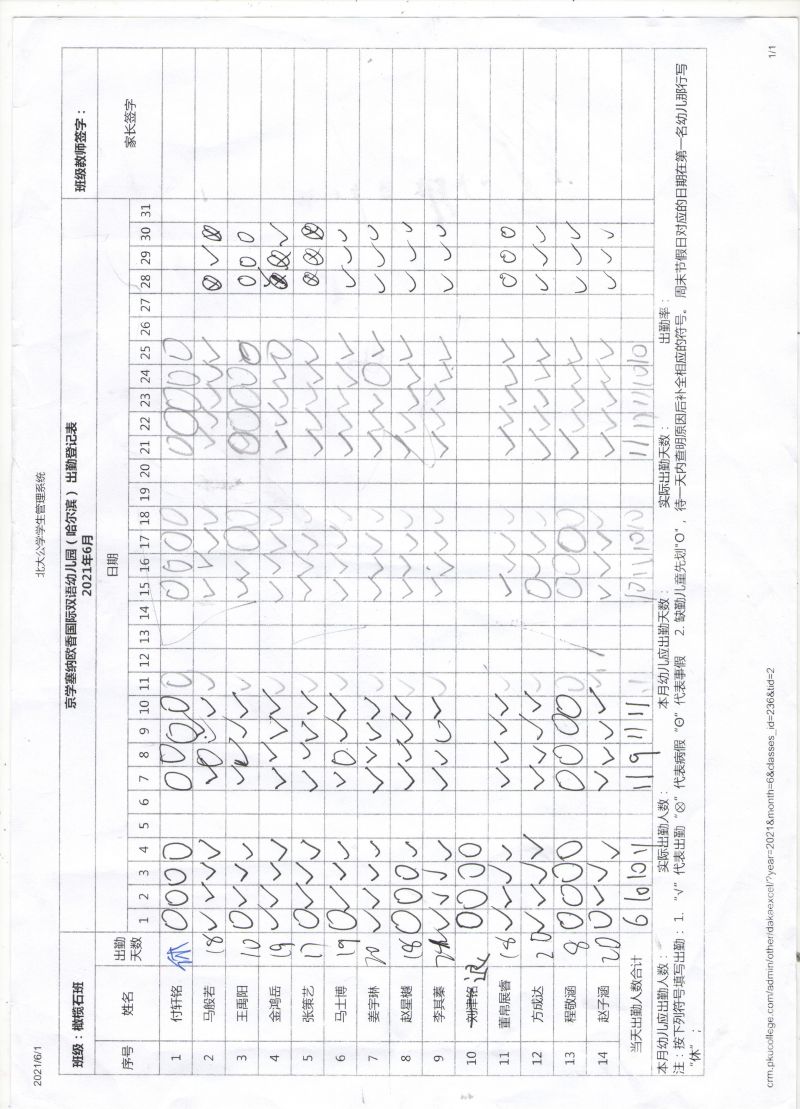 2021/6/1 北大公学学生管理系统
京学塞纳欧香国际双语幼儿园（哈尔滨）出勤登记表
2021年6月
班级：橄榄石班 班级教师签字：
序号 姓名 出勤天数 日期 家长签字
1 2 3 4 5 6 7 8 9 10 11 12 13 14 15 16 17 18 19 20 21 22 23 24 25 26 27 28 29 30 31
1 付轩铭 休
2 马般若 18
3 王禹阳 10
4 金鸿岳 19
5 张策艺 17
6 马士博 19
7 姜宇琳 20
8 赵是樾 18
9 李其蓁
10 刘津铭 退
11 董帛展睿 18
12 方成达 20
13 程敬涵 8
14 赵子涵 20
当天出勤人数合计 6 10 10 11 11 9 11 11
本月幼儿应出勤人数： 实际出勤人数： 本月幼儿应出勤天数： 实际出勤天数： 出勤率：
注：按下列符号填写出勤：1. “√” 代表出勤 “⊗” 代表病假 “Θ” 代表事假 2. 缺勤儿童先划"O"，待一天内查明原因后补全相应的符号。 周末节假日对应的日期在第一名幼儿那行写
“休”；
crm.pkucollege.com/admin/other/dakaexcel/?year=2021&month=6&classes_id=236&tid=2 1/1